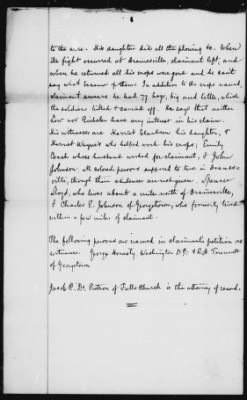 to the acre. His daughter did all the plowing &c. When
the fight occurred at Drainesville, claimant left, and
when he returned all his crops were gone and he can't
say what became of them. In addition to the crops named,
claimant swears he had 77 hogs, big and little, which
the soldiers killed & carried off. He says that neither
Low nor Nicholas have any interest in his claim.
His witnesses are Harriet Blackburn his daughter, &
Harriet who helped work his crops; Emily
Coach whose husband worked for claimant, & John
Johnson. All colored persons supposed to live in Draines-
ville, though their residences are not given. Spencer
Lloyd, who lives about a mile north of Drainesville,
& Charles E. Johnson of Georgetown, who formerly lived
within a few miles of claimant.
The following persons are named in claimant's petition as
witnesses. George Honesty, Washington D.C. & R.H. Trunnell
of Georgetown
Jacob C. De Putron of Falls Church is the attorney of record.